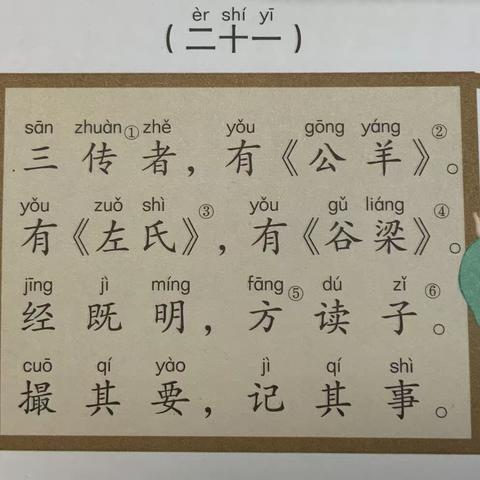 èr shí yī
（二十一）
sān zhuàn zhě yǒu gōng yáng
三传①者，有《公羊》②。
yǒu zuǒ shì yǒu gǔ liáng
有《左氏》③，有《谷梁》④。
jīng jì míng fāng dú zǐ
经既明，方⑤读子⑥。
cuō qí yào jì qí shì
撮其要，记其事。